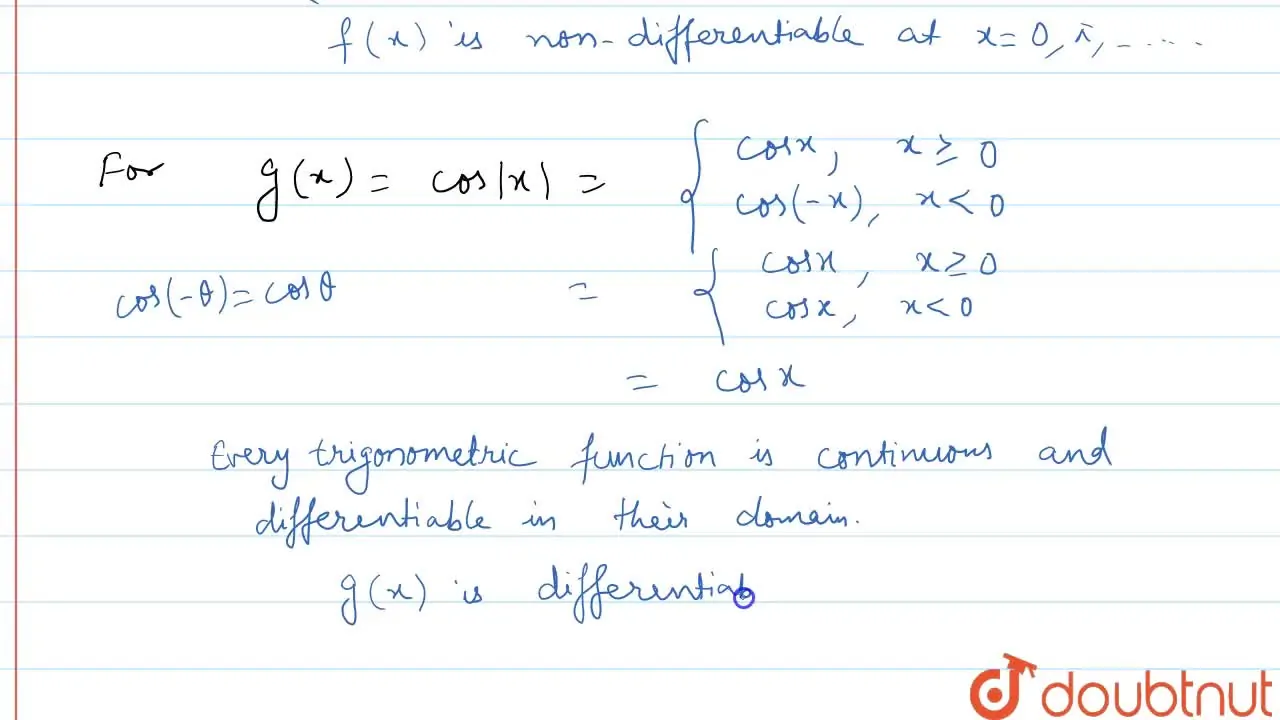 f(x) is non-differentiable at x=0, π, -....
For g(x) = cos|x| = { cosx, x ≥ 0
cos(-x), x < 0
cos(-θ) = cosθ = { cosx, x ≥ 0
cosx, x < 0
= cosx
Every trigonometric function is continuous and
differentiable in their domain.
g(x) is differentiab
doubtnut